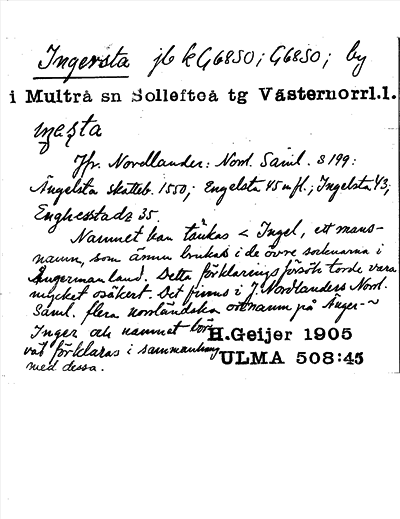 Ingersta jb k G6850; G6850; by
i Multrå sn Sollefteå tg Västernorrl.l.
Jfr. Nordlander: Norrl. Saml. s 199:
Ängelsta skatteb. 1550; Engelsta 45 m fl.; Ingelsta 43;
Enghesstadz 35.
Namnet kan tänkas < Ingel, ett mans-
namn, som ännu brukas i de övre socknarna i
Ångermanland. Detta förklaringsförsök torde vara
mycket osäkert. Det finns i J. Nordlanders Norrl.
Saml. flera norrländska ortnamn på Änger- ~
Inger och namnet bör
väl förklaras i sammanhang
med dessa.
H.Geijer 1905
ULMA 508:45